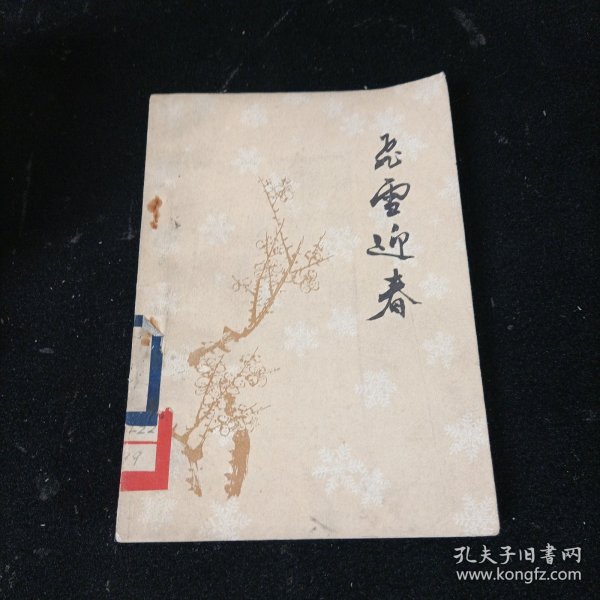 飞雪迎春
19
孔夫子旧書网
www.kongfz.com